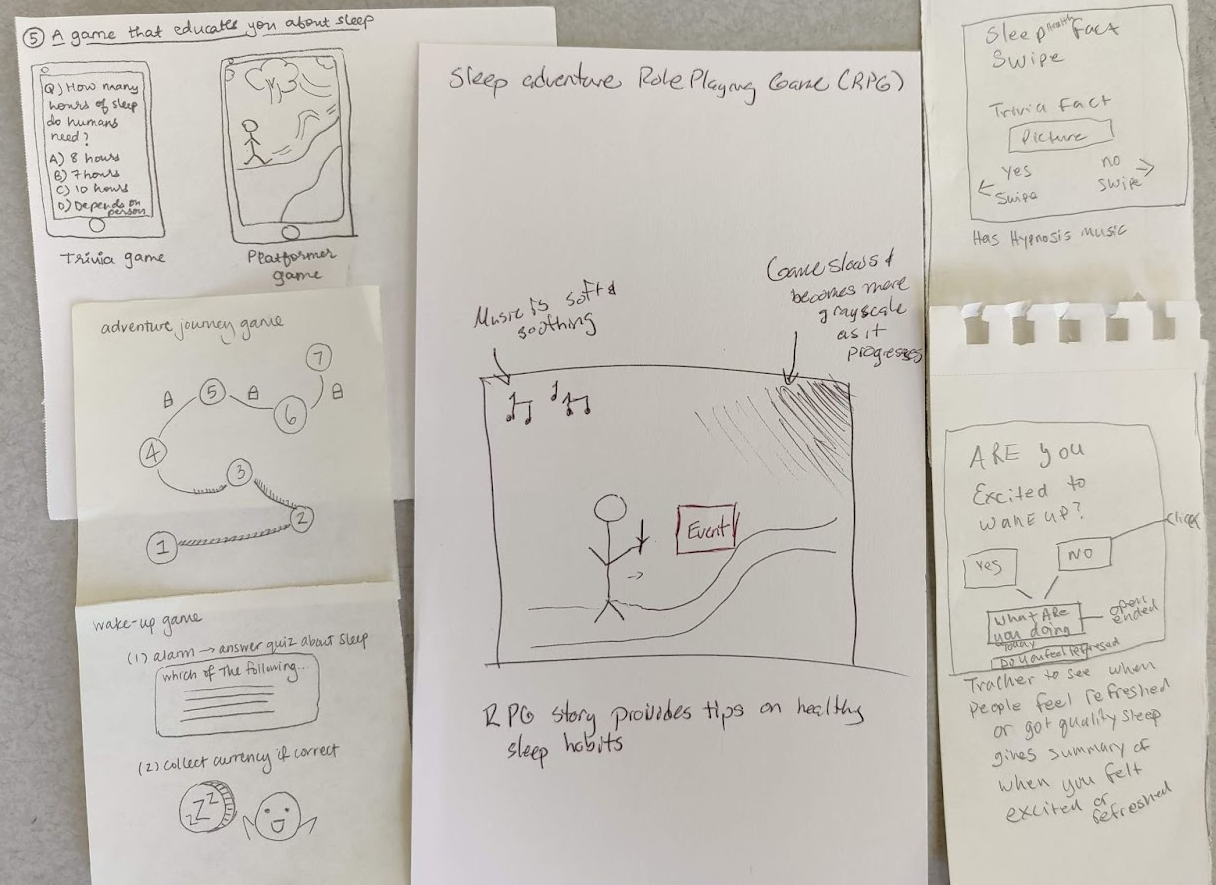 ⑤ A game that educates you about sleep
Q) How many
hours of sleep
do humans
need?
A) 8 hours
B) 7 hours
C) 10 hours
D) Depends on
person
Trivia game
Platformer
game
adventure journey game
1
2
3
4
5
6
7
wake-up game
(1) alarm → answer quiz about sleep
which of The following...
(2) collect currency if correct
zZZ
Sleep adventure Role Playing Game (RPG)
Music is soft &
soothing
Game slows &
becomes more
grayscale
as it
progresses
Event
RPG story provides tips on healthy
sleep habits
Sleep health Fact
Swipe
Trivia Fact
Picture
← Yes
Swipe
no →
swipe
Has Hypnosis Music
ARE you
Excited to
WAKE UP?
Yes
NO
Click
What ARE
you doing
Today
open
ended
Do you feel refresed
Tracker to see when
people feel refreshed
or got quality sleep
gives summary of
when you felt
excited or
refreshed